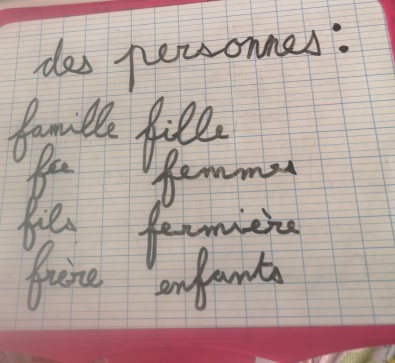 des personnes:
famille fille
fée femmes
fils fermière
frère enfants